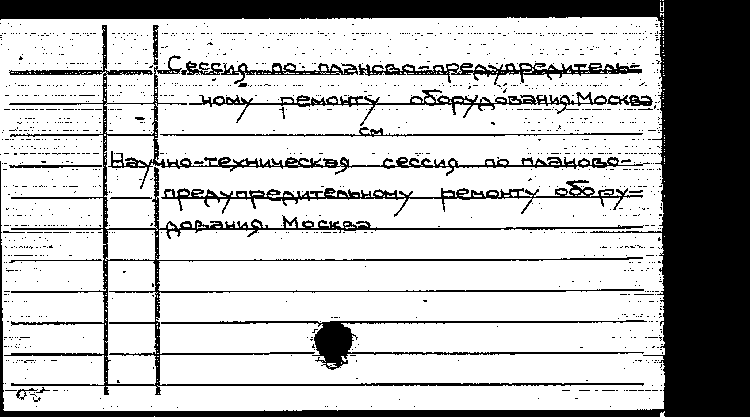 Сессия по планово-предупредитель-
ному ремонту оборудования. Москва
см
Научно-техническая сессия по планово-
предупредительному ремонту обору-
дования. Москва